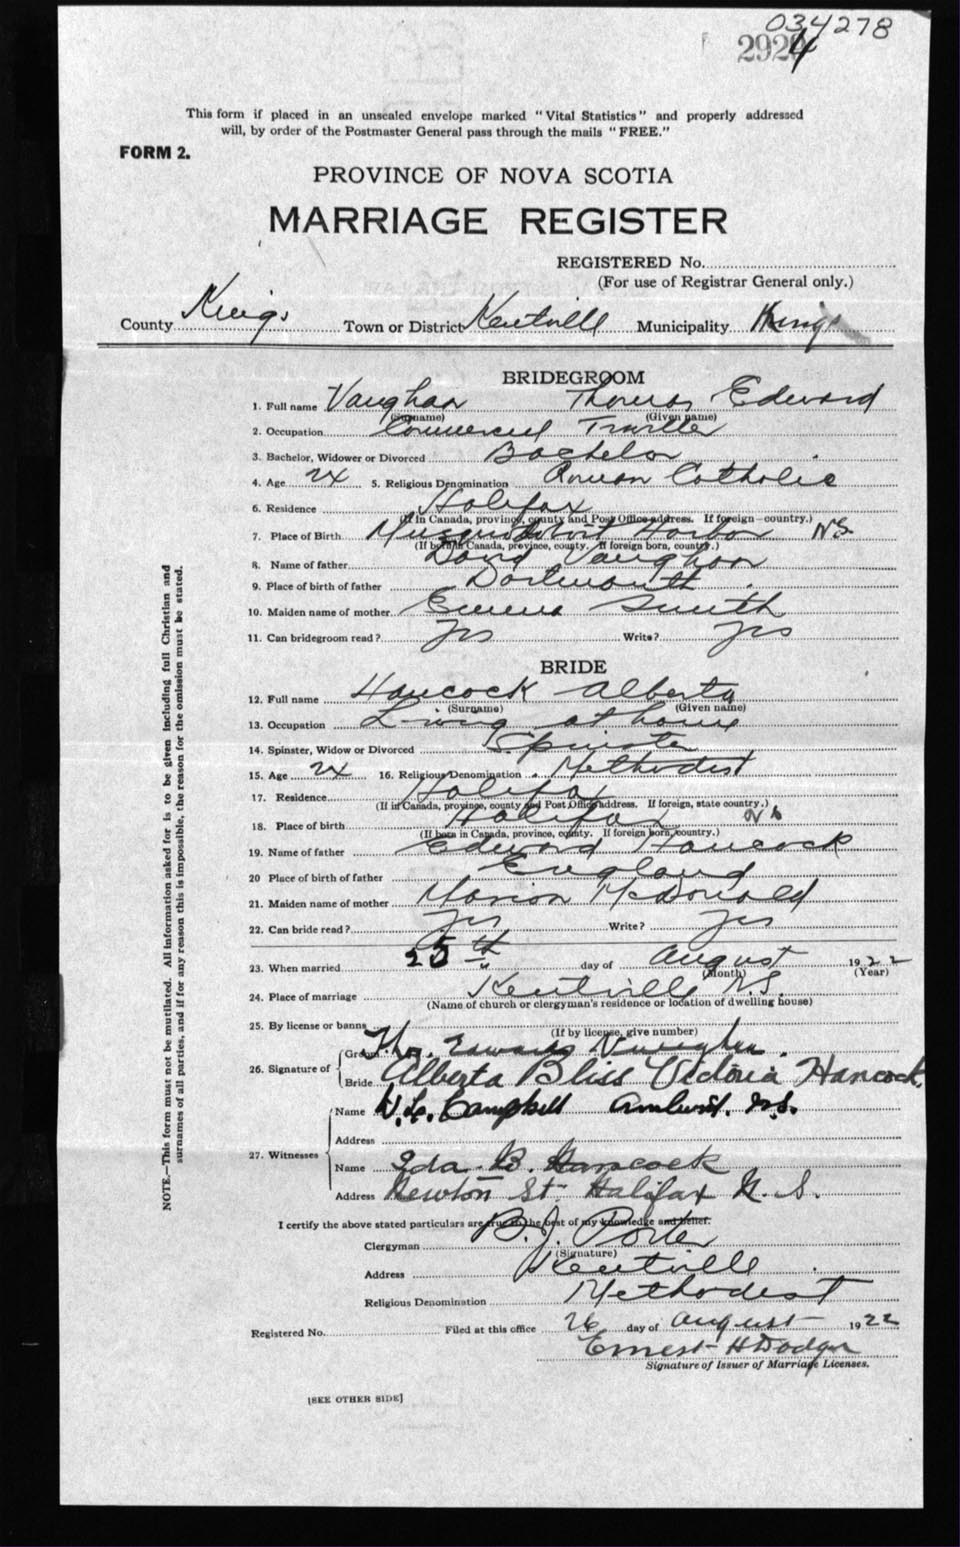 034278
2924
This form if placed in an unsealed envelope marked "Vital Statistics" and properly addressed
will, by order of the Postmaster General pass through the mails "FREE."
FORM 2.
PROVINCE OF NOVA SCOTIA
MARRIAGE REGISTER
REGISTERED No.
(For use of Registrar General only.)
County Kings Town or District Kentville Municipality Kings
BRIDEGROOM
1. Full name Vaughan Thomas Edward
(Surname) (Given name)
2. Occupation Commercial Traveller
3. Bachelor, Widower or Divorced Bachelor
4. Age 5. Religious Denomination Roman Catholic
6. Residence Halifax
(If in Canada, province, county and Post Office address. If foreign—country.)
7. Place of Birth Musquodoboit Harbor N.S.
(If born in Canada, province, county. If foreign born, country.)
8. Name of father David Vaughan
9. Place of birth of father Dartmouth
10. Maiden name of mother Emma Smith
11. Can bridegroom read? Yes Write? Yes
BRIDE
12. Full name Hancock Alberta
(Surname) (Given name)
13. Occupation Living at home
14. Spinster, Widow or Divorced Spinster
15. Age 16. Religious Denomination Methodist
17. Residence Halifax
(If in Canada, province, county and Post Office address. If foreign, state country.)
18. Place of birth Halifax NS
(If born in Canada, province, county. If foreign born, country.)
19. Name of father Edward Hancock
20 Place of birth of father England
21. Maiden name of mother Marion McDonald
22. Can bride read? Yes Write? Yes
23. When married 25th day of August 1922
(Month) (Year)
24. Place of marriage Kentville N.S.
(Name of church or clergyman's residence or location of dwelling house)
25. By license or banns
(If by license, give number)
26. Signature of
Groom Thos. Edward Vaughan.
Bride Alberta Bliss Victoria Hancock.
27. Witnesses
Name Campbell Amherst. N.S.
Address
Name Ida B. Hancock
Address Newton St. Halifax N. S.
I certify the above stated particulars are true to the best of my knowledge and belief.
Clergyman B. J. Porter
(Signature)
Address Kentville
Religious Denomination Methodist
Registered No. Filed at this office 26 day of August 1922
Ernest H Dodge
Signature of Issuer of Marriage Licenses.
[SEE OTHER SIDE]
NOTE.—This form must not be mutilated. All Information asked for is to be given including full Christian and
surnames of all parties, and if for any reason this is impossible, the reason for the omission must be stated.